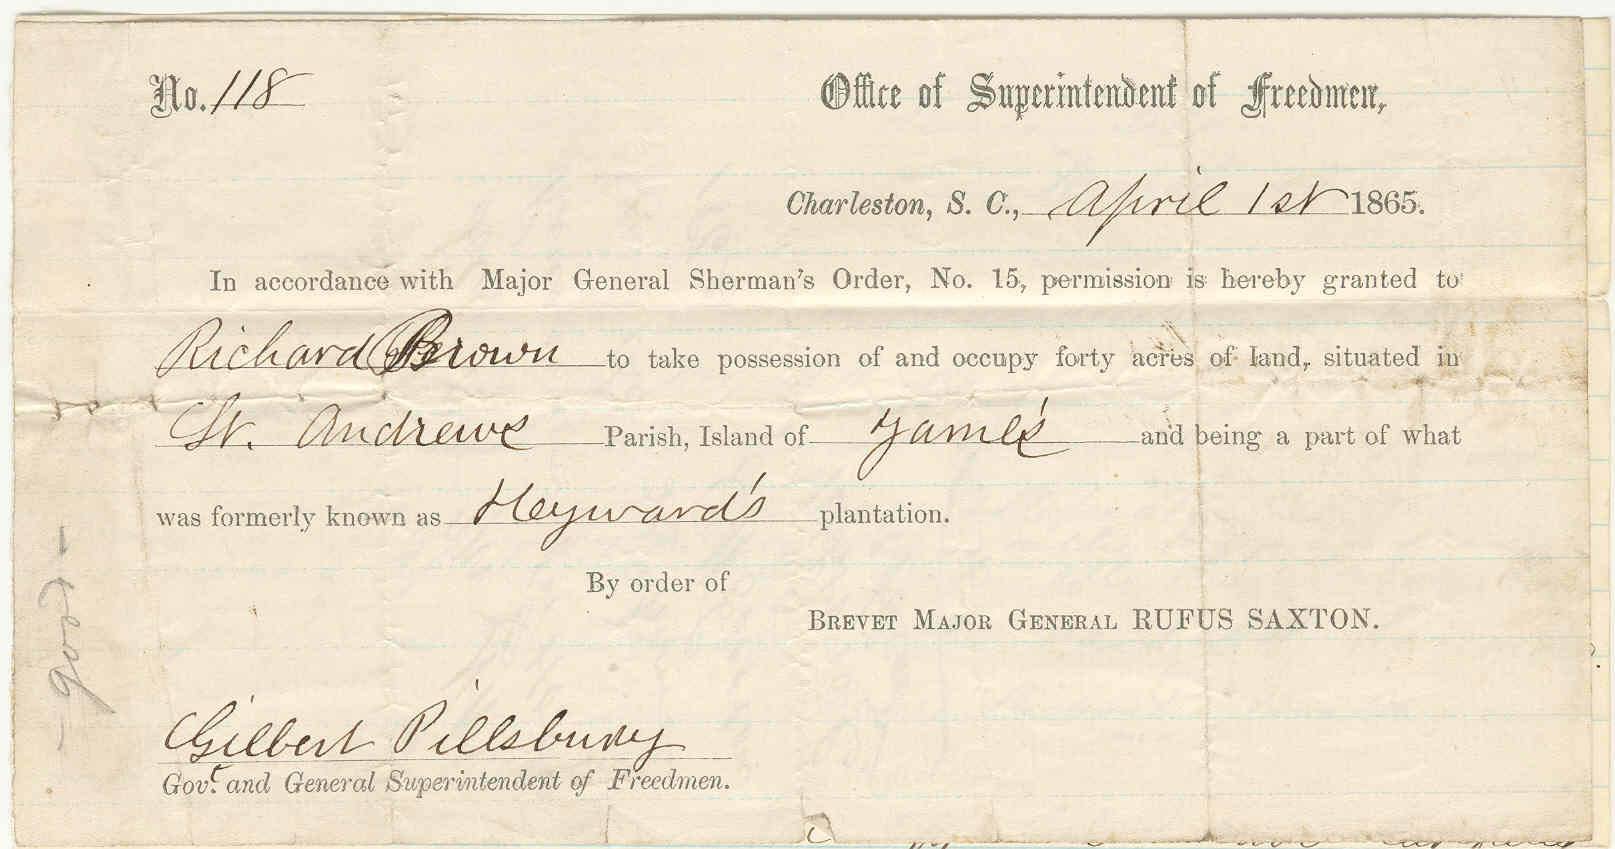 No. 118 Office of Superintendent of Freedmen,
Charleston, S. C., April 1st 1865.
In accordance with Major General Sherman's Order, No. 15, permission is hereby granted to
Richard Brown to take possession of and occupy forty acres of land, situated in
St. Andrews Parish, Island of James and being a part of what
was formerly known as Heyward's plantation.
By order of
BREVET MAJOR GENERAL RUFUS SAXTON.
Gilbert Pillsbury
Gov't and General Superintendent of Freedmen.
- good -